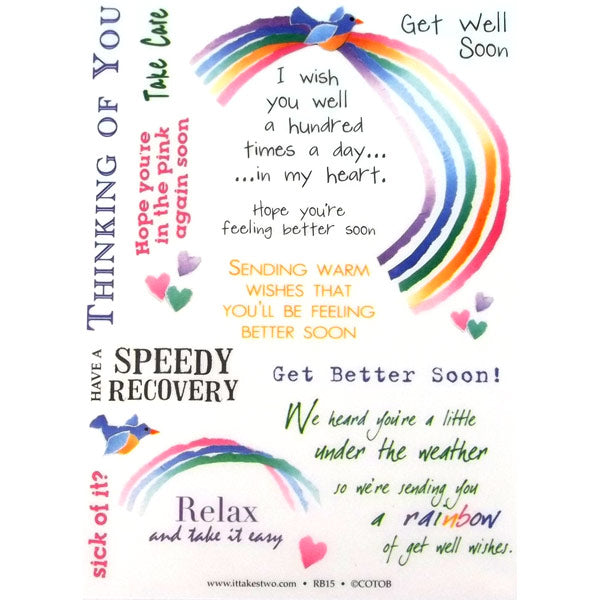 THINKING OF YOU
Take Care
Hope you're
in the pink
again soon
Get Well
Soon
I wish
you well
a hundred
times a day...
...in my heart.
Hope you're
feeling better soon
SENDING WARM
WISHES THAT
YOU'LL BE FEELING
BETTER SOON
HAVE A
SPEEDY
RECOVERY
Get Better Soon!
We heard you're a little
under the weather
so we're sending you
a rainbow
of get well wishes.
sick of it?
Relax
and take it easy
www.ittakestwo.com • RB15 • ©COTOB